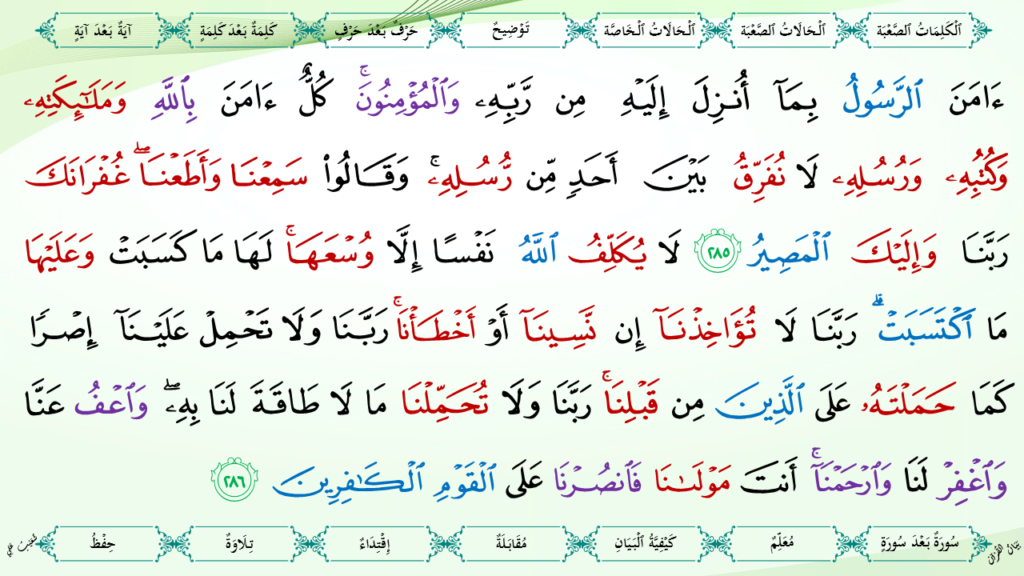 اَلْكَلِمَاتُ الصَّعْبَة اَلْحَالَاتُ الصَّعْبَة اَلْحَالَاتُ الْخَاصَّة تَوْضِيحٌ حَرْفٌ بَعْدَ حَرْفٍ كَلِمَةٌ بَعْدَ كَلِمَةٍ آيَةٌ بَعْدَ آيَةٍ
ءَامَنَ ٱلرَّسُولُ بِمَآ أُنزِلَ إِلَيْهِ مِن رَّبِّهِۦ وَٱلْمُؤْمِنُونَۚ كُلٌّ ءَامَنَ بِٱللَّهِ وَمَلَـٰٓئِكَتِهِۦ
وَكُتُبِهِۦ وَرُسُلِهِۦ لَا نُفَرِّقُ بَيْنَ أَحَدٍ مِّن رُّسُلِهِۦۚ وَقَالُوا۟ سَمِعْنَا وَأَطَعْنَاۖ غُفْرَانَكَ
رَبَّنَا وَإِلَيْكَ ٱلْمَصِيرُ ٢٨٥ لَا يُكَلِّفُ ٱللَّهُ نَفْسًا إِلَّا وُسْعَهَاۚ لَهَا مَا كَسَبَتْ وَعَلَيْهَا
مَا ٱكْتَسَبَتْۗ رَبَّنَا لَا تُؤَاخِذْنَآ إِن نَّسِينَآ أَوْ أَخْطَأْنَاۚ رَبَّنَا وَلَا تَحْمِلْ عَلَيْنَآ إِصْرًا
كَمَا حَمَلْتَهُۥ عَلَى ٱلَّذِينَ مِن قَبْلِنَاۚ رَبَّنَا وَلَا تُحَمِّلْنَا مَا لَا طَاقَةَ لَنَا بِهِۦۖ وَٱعْفُ عَنَّا
وَٱغْفِرْ لَنَا وَٱرْحَمْنَآۚ أَنتَ مَوْلَىٰنَا فَٱنصُرْنَا عَلَى ٱلْقَوْمِ ٱلْكَـٰفِرِينَ ٢٨٦
سُورَةٌ بَعْدَ سُورَةٍ مُعَلِّمٌ كَيْفِيَّةُ الْبَيَانِ مُقَابَلَةٌ إِقْتِدَاءٌ تِلَاوَةٌ حِفْظٌ
بَيَانُ القُرْآن